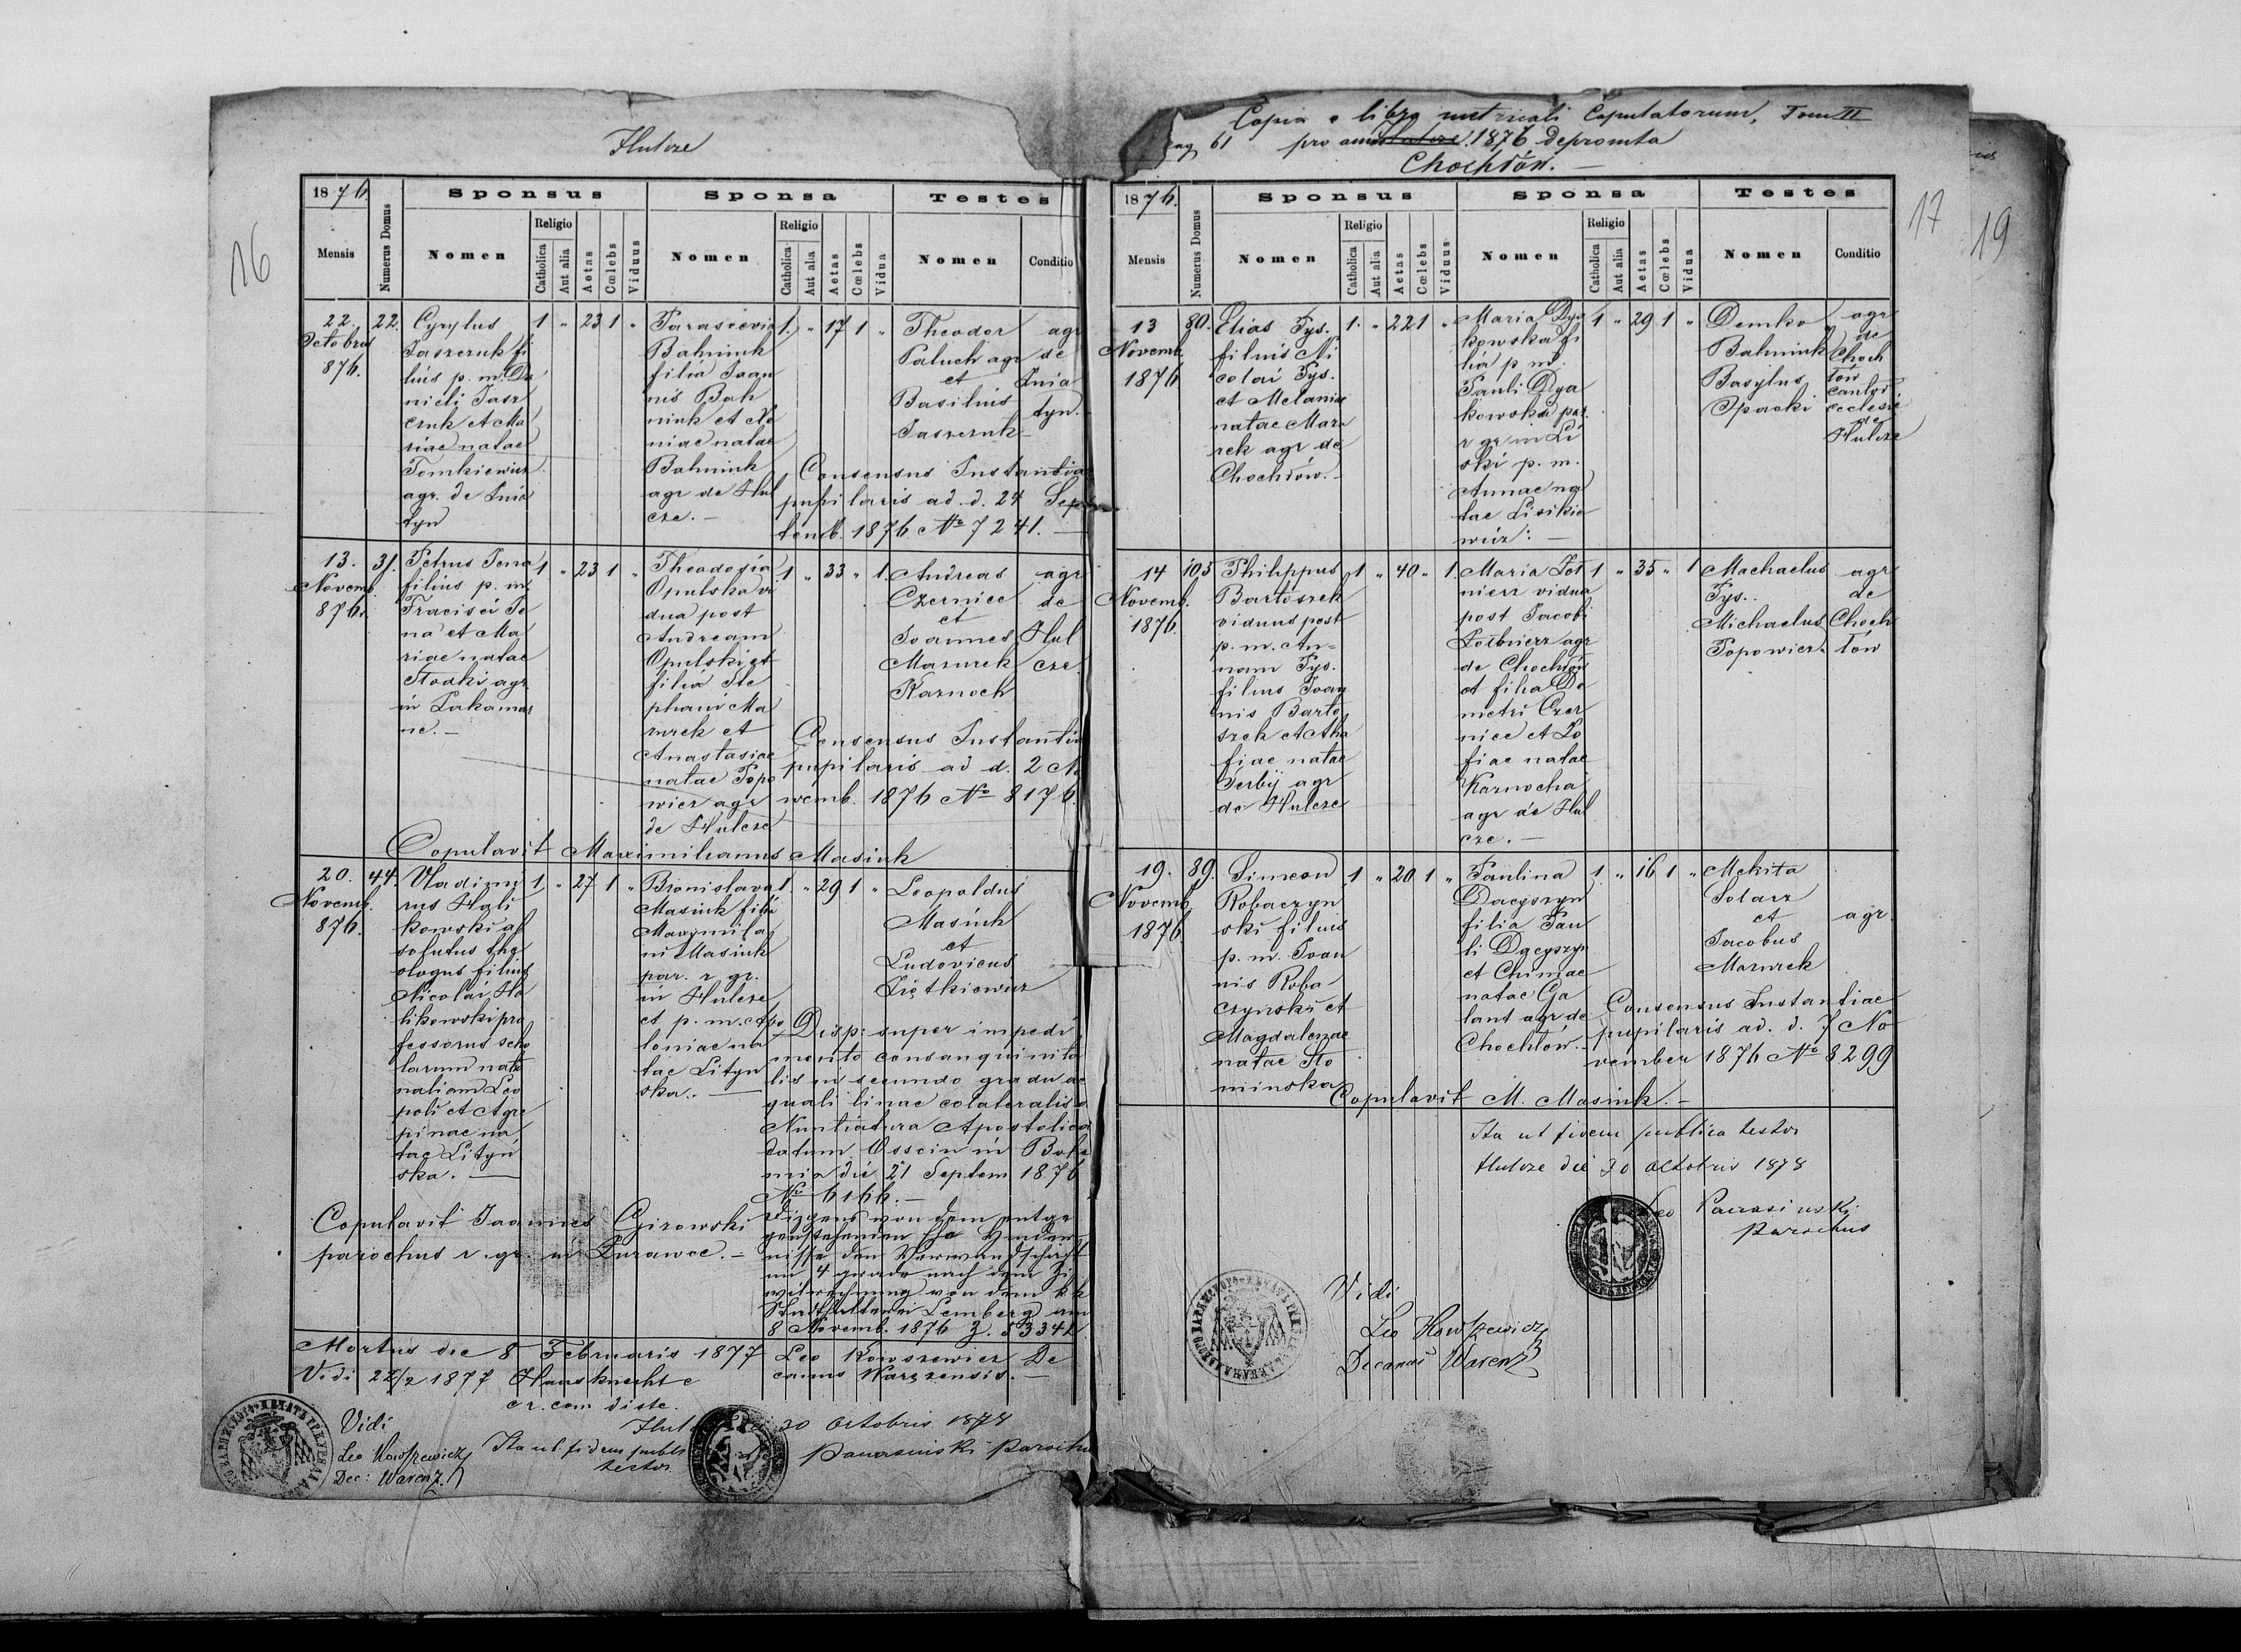 Hulcze
16
1876.
Mensis
Numerus Domus
Sponsus
Nomen
Religio
Catholica
Aut alia
Aetas
Cœlebs
Viduus
Sponsa
Nomen
Religio
Catholica
Aut alia
Aetas
Cœlebs
Vidua
Testes
Nomen
Conditio
22.
Octobris
876.
22.
Cyrylus
Jaszczuk fi
lius p. m. Da
nieli Jasz
czuk et Ma
riae natae
Tomkiewicz
agr. de Snia
tyn
1 " 23 1 "
Parascevia
Bahniuk
filia Joan
nis Bah
niuk et Xe
niae natae
Bahniuk
agr de Hul
cze. —
1. " 17 1 "
Theodor
Paluch agr
et
Basilius
Jaszczuk
agr
de
Snia
tyn.
Consensus Instantiae
pupilaris ad. d. 24 Sep
temb. 1876 No 7241. —
13.
Novemb.
876.
31.
Petrus Jona
filius p. m.
na et Ma
riae natae
Stocki agr.
1 " 23 1 "
Theodosia
Opulska vi
dua post
Andream
Opulski et
filia Ste
phani Ma
zurek et
Anastasiae
natae Popo
wicz agr
de Hulcze
1 " 33 " 1.
Andreas
Czernice
et
Joannes
Mazurek
Karnoch
agr
de
Hul
cze
Consensus Instantia
pupilaris ad d. 2 N
vemb. 1876 No 8176.
Copulavit Maximilianus Masiuk
20.
Novemb.
876.
44.
Vladimi
rus Hali
kowski ab
solutus the
ologus filius
Nicolai Ha
likowski pro
fessorus scho
larum natio
nalium Leo
poli et Agre
pinae na
tae Lityń
ska. —
1 " 27 1 "
Bronislava
Masiuk filia
Maxymila
ni Masiuk
par. r. gr.
in Hulcze
et p. m. Apo
loniae na
tae Lityn
ska. —
1. " 29 1 "
Leopoldus
Masiuk
et
Ludovicus
Ziętkiewicz
Disp: super impedi
mento consanquinita
tis in secundo gradu ae
quali linae colateralis a
Nuntiatura Apostolica
datum Ossein in Bohe
mia die 21 Septem 1876
No 6166. —
nisse der Verwandschaft
im 4 grade nach dem Zi
vilrechnung von dem kk
Statthalterei Lemberg am
8 Novemb. 1876 Z. 53341
Copulavit Joannes Girowski
parochus r. gr. in Żurawce. —
Mortus die 8 Februaris 1877
Vidi 22/2 1877 Hausknecht c
cr. com distr.
Leo Kowszewicz De
canus Waręzensis. —
Vidi
Leo Kowszewicz
Dec: Warenz.
Ita ut fidem public
testor
30 Octobris 1878
Panasinski Parochus
Copia e libro metricali Copulatorum, Tom III
pag 61 pro anno Hulcze 1876 depromta
Chochłów. —
17
19
1876.
Mensis
Numerus Domus
Sponsus
Nomen
Religio
Catholica
Aut alia
Aetas
Cœlebs
Viduus
Sponsa
Nomen
Religio
Catholica
Aut alia
Aetas
Cœlebs
Vidua
Testes
Nomen
Conditio
13
Novemb.
1876
80.
Elias Tys.
filius Ni
colai Tys.
et Melaniae
natae Mazu
rek agr de
Chochłów. —
1. " 22 1 "
Maria Dya
kowska fi
lia p m.
Pauli Dya
kowski par.
r gr in Li
ski p. m.
Annae na
tae Lisikie
wicz: —
1 " 29 1 "
Demko
Bahniuk
Basylus
Opacki
agr
de
Choch
łów
cantor
ecclesie
de
Hulcze
14
Novemb.
1876
105
Philippus
Bartoszek
viduus post
p. m. An=
nam Tys.
filius Joan
nis Barto
szek et Aha
fiae natae
Serbij agr
de Hulcze
1 " 40 " 1.
Maria Żoł
nierz vidua
post Jacobi
Żołnierz agr
de Chochłów
et filia De
metri Czer
nice et Zo
fiae natae
Karnocha
agr de Hul
cze. —
1 " 35 " 1
Machaelus
Tys.
Michaelus
Popowicz.
agr
de
Choch
łów
19.
Novemb.
1876
89.
Simeon
Robaczyn
ski filius
p. m. Joan
nis Roba
czynski et
Magdalenae
natae Sło
minska
1 " 20 1 "
Paulina
Dacyszyn
filia Pau
li Dacyszyn
et Chimae
natae Ga
lant agr de
Chochłów. —
1. " 16 1 "
Mekita
Solarz
et
Jacobus
Mazurek
agr.
Consensus Instantiae
pupilaris ad. d. 7 No
vember 1876 No 8299
Copulavit M. Masiuk. —
Ita ut fidem publica testor
Hulcze die 30 Octobris 1878
Leo Panasinski
Parochus
Vidi
Leo Kowszewicz
Decanus Warenz